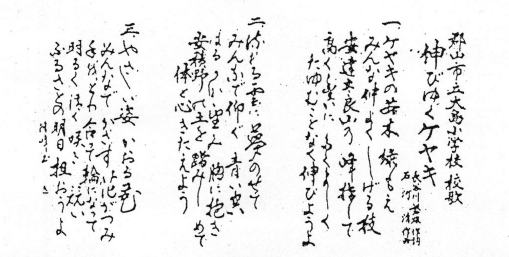 郡山市立大島小学校 校歌
伸びゆくケヤキ
作詞
石河 清 作曲
一 ケヤキの若木 緑もえ
みんな仲よく しげる枝
安達太良山の 峰指して
高く 
たゆむことなく 伸びようよ
二 流れる雲に 夢のせて
みんなで仰ぐ 青い空
はるかい望み 胸に抱き
安積野の土を 踏みしめて
体と心 きたえよう
三 やさしい姿 かおる
みんなでかざす 花がつみ
手をとり合って 輪になって
明るく清く 咲き競い
ふるさとの明日 担おうよ